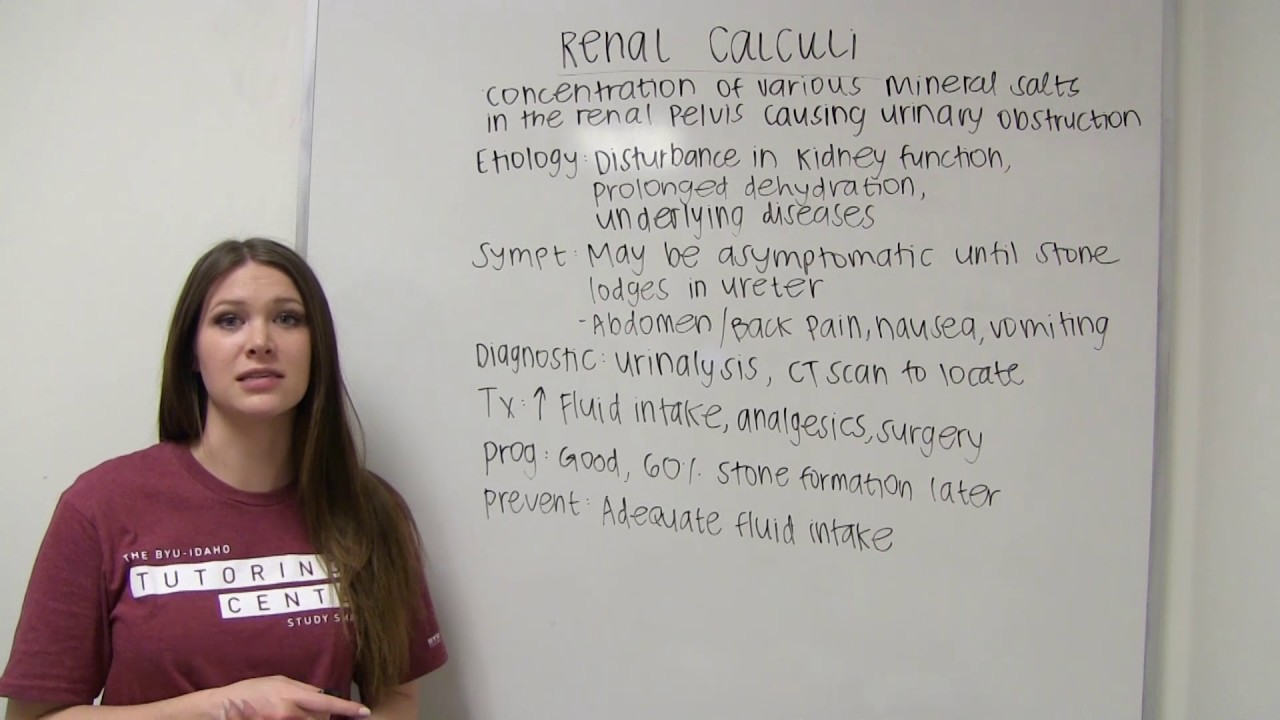 Renal Calculi
concentration of various mineral salts
in the renal pelvis causing urinary obstruction
Etiology: Disturbance in kidney function,
prolonged dehydration,
underlying diseases
Sympt: May be asymptomatic until stone
lodges in ureter
-Abdomen/Back pain, nausea, vomiting
Diagnostic: urinalysis, CT scan to locate
Tx: ↑ Fluid intake, analgesics, surgery
Prog: Good, 60% stone formation later
Prevent: Adequate fluid intake
THE BYU-IDAHO
TUTORIN
CENT
STUDY